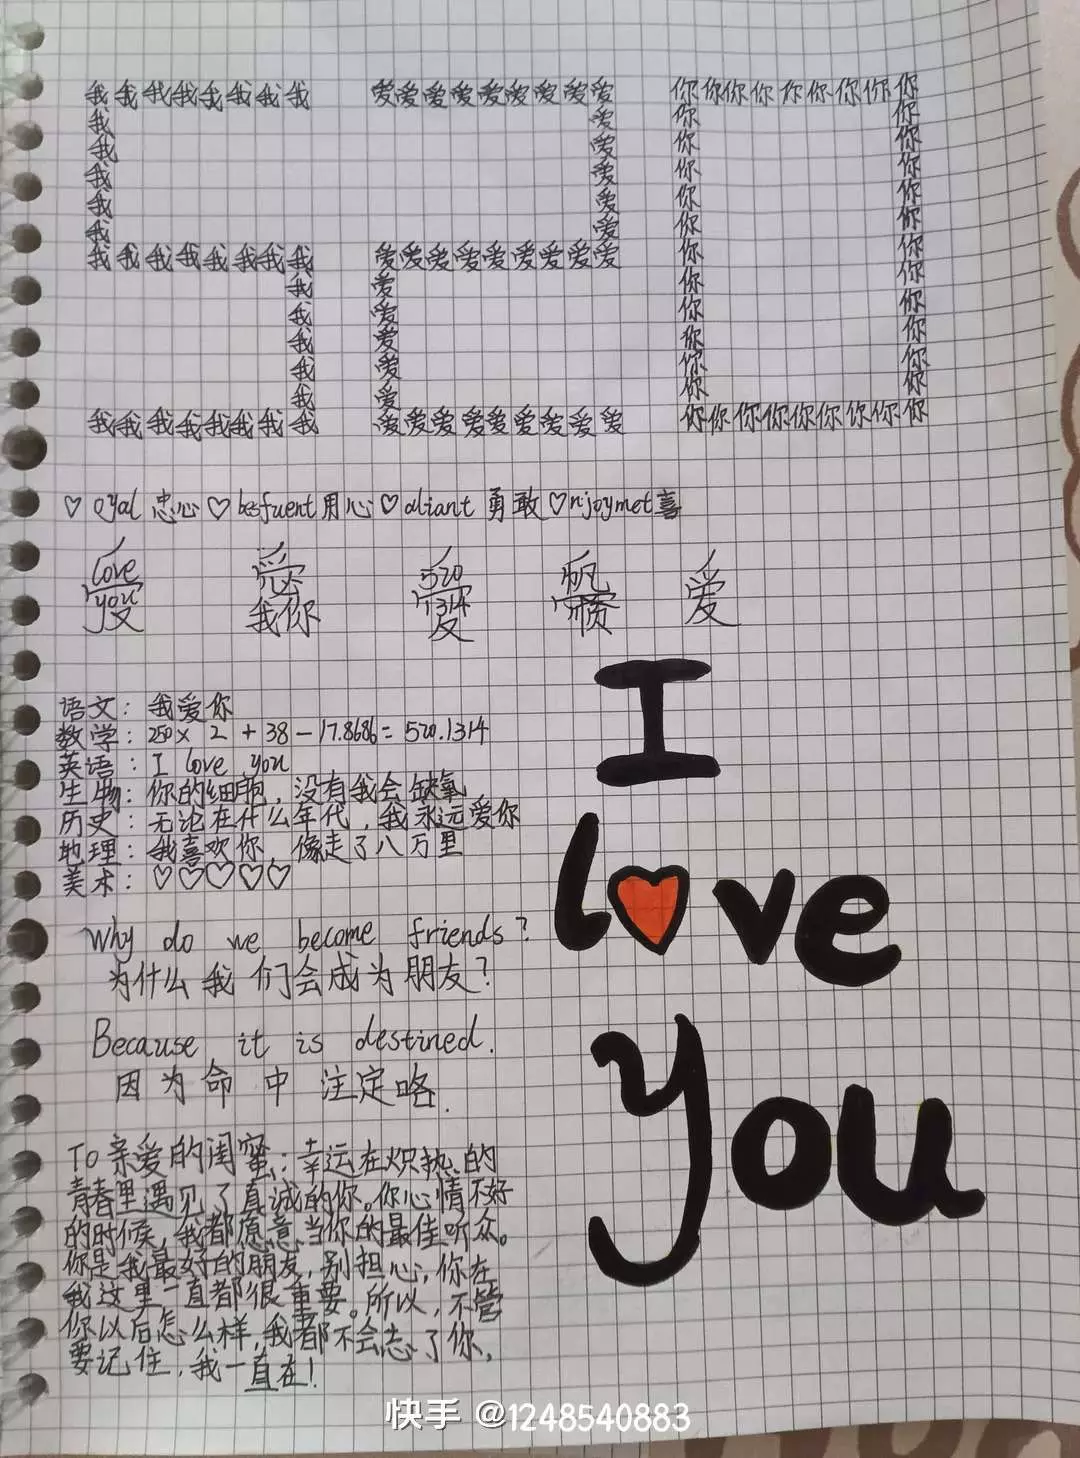 我我我我我我我我 爱爱爱爱爱爱爱爱爱 你你你你你你你你你
我 爱 你 你
我 爱 你 你
我 爱 你 你
我 爱 你 你
我 爱 你 你
我我我我我我我我 爱爱爱爱爱爱爱爱爱 你 你
我 爱 你 你
我 爱 你 你
我 爱 你 你
我 爱 你 你
我 爱 你 你
我我我我我我我我 爱爱爱爱爱爱爱爱爱 你你你你你你你你你
♡oyal 忠心♡besfuent用心♡aliant 勇敢♡njoymet喜
love
you
我你
520
1314
爱
语文：我爱你
数学：250×2+38-17.8686=520.1314
英语：I love you
生物：你的细胞，没有我会缺氧
历史：无论在什么年代，我永远爱你
地理：我喜欢你，像走了八万里
美术：♡♡♡♡♡
Why do we become friends?
为什么我们会成为朋友?
Because it is destined.
因为命中注定咯.
To亲爱的闺蜜：幸运在炽热的
青春里遇见了真诚的你。你心情不好
的时候，我都愿意当你的最佳听众。
你是我最好的朋友，别担心，你在
我这里一直都很重要。所以，不管
你以后怎么样，我都不会忘了你，
要记住，我一直在!
I
l♥ve
you
快手 @1248540883